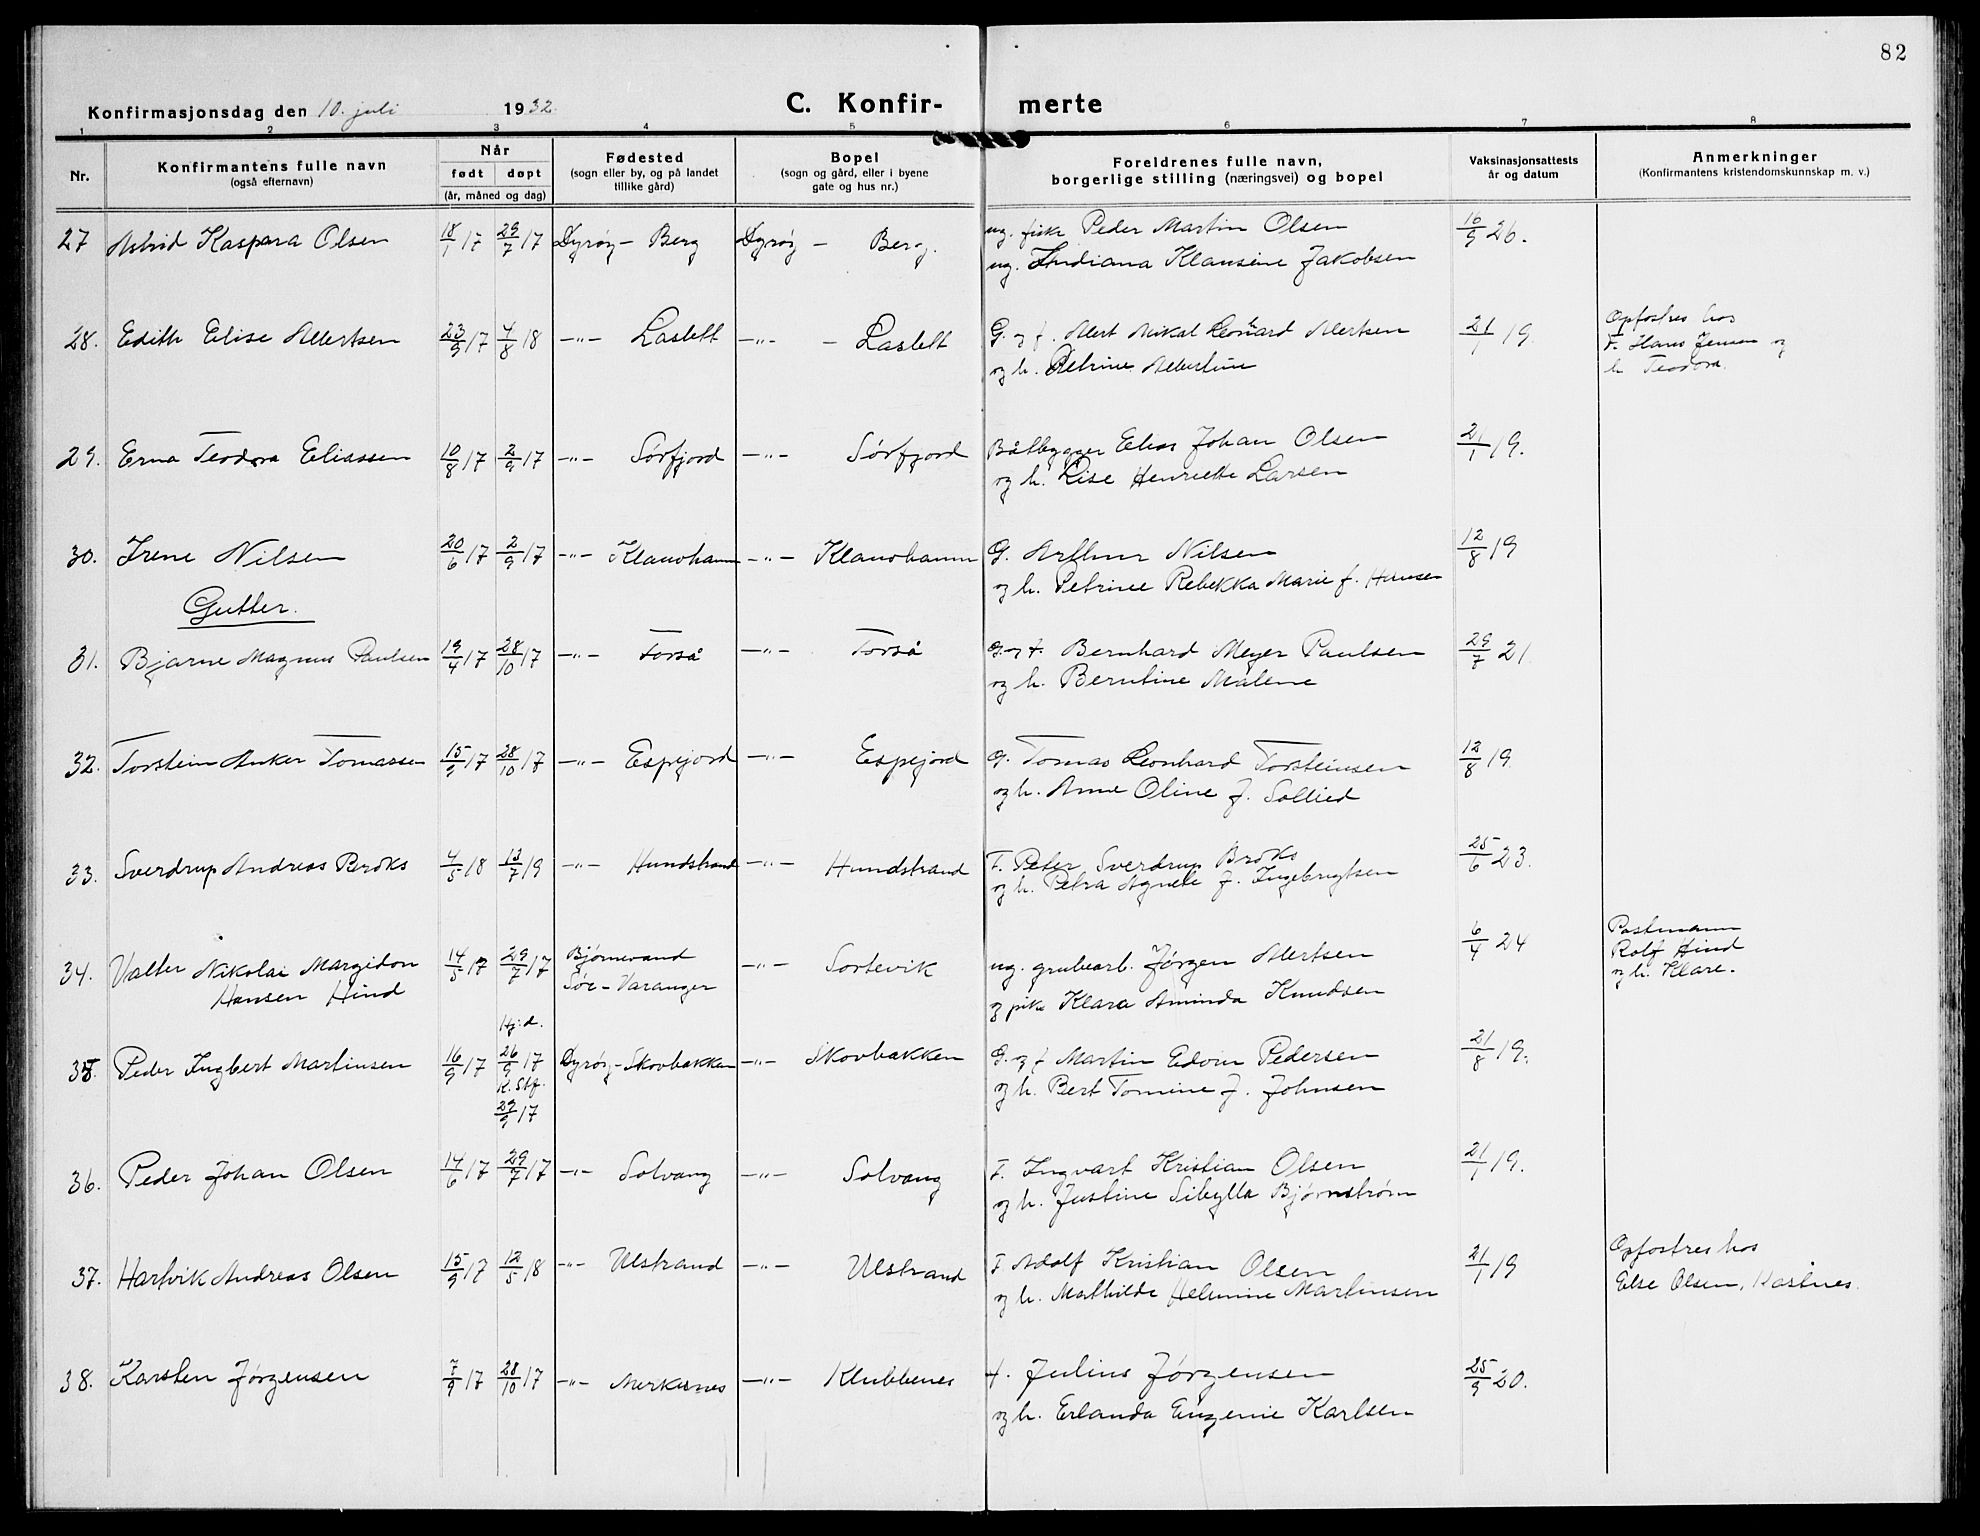 82
Konfirmasjonsdag den 10. juli 1932.
C. Konfir- merte
1 2 3 4 5 6 7 8
Nr.
Konfirmantens fulle navn
(også efternavn)
Når
født døpt
(år, måned og dag)
Fødested
(sogn eller by, og på landet
tillike gård)
Bopel
(sogn og gård, eller i byene
gate og hus nr.)
Foreldrenes fulle navn,
borgerlige stilling (næringsvei) og bopel
Vaksinasjonsattests
år og datum
Anmerkninger
(Konfirmantens kristendomskunnskap m. v.)
27 Astrid Kaspara Olsen 18/1 17 29/7 17 Dyrøy - Berg Dyrøy - Berg. ug. fisk Peder Martin Olsen 16/9 26.
ug. Indiana Klausine Jakobsen
28. Edith Elise Albertsen 23/9 17 4/8 18 -"- Laslett -"- - Laslett G. og f. Albert Mikal Leonhard Albertsen 21/1 19.
og h. Petrine Albertine
Opfostres hos
F. Hans Jensen og
h. Teodora.
29. Erna Teodora Eliassen 10/8 17 2/9 17 -"- Sørfjord -"- Sørfjord Båtbygger Elias Johan Olsen 21/1 19.
og h. Lise Henriette Larsen
30. Irene Nilsen 20/6 17 2/9 17 -"- Klauvhamn -"- Klauvhamn G. Arthur Nilsen 12/8 19
og h. Petrine Rebekka Marie f. Hansen
Gutter.
31. Bjarne Magnus Paulsen 19/4 17 28/10 17 -"- Torså -"- Torså G. og f. Bernhard Meyer Paulsen 29/7 21
og h. Berntine Malene
32. Torstein Anker Tomassen 15/9 17 28/10 17 -"- Espejord -"- Espejord G. Tomas Leonhard Torsteinsen 12/8 19
og h. Anne Oline f. Sollied
33. Sverdrup Andreas Broks 4/5 18 13/7 19 -"- Hundstrand -"- Hundstrand F. Peter Sverdrup Broks 25/6 23.
og h. Petra Agnete f. Ingebrigtsen
34. Valter Nikolai Margidon 14/5 17 29/7 17 Bjørnevand -"- Sortevik ug. grubearb. Jørgen Albertsen 6/4 24
Hansen Hind Sør-Varanger og pike Klara Aminda Knudsen
Postmann
Rolf Hind
og h. Klare.
35. Peder Ingbert Martinsen 16/9 17 Hj. d. 26/9 17 K. Stf. 29/9 17 Dyrøy - Skovbakken -"- Skovbakken G. og f Martin Edvin Pedersen 21/8 19.
og h. Bert Tomine f. Johnsen
36. Peder Johan Olsen 14/6 17 29/7 17 -"- Solvang -"- Solvang F. Ingvart Kristian Olsen 21/1 19.
og h. Justine Sibylla Bjørnstrøm
37. Hartvik Andreas Olsen 15/9 17 12/5 18 -"- Ulstrand -"- Ulstrand F Adolf Kristian Olsen 21/1 19
og h. Mathilde Helmine Martinsen
Opfostres hos
Else Olsen, Kastnes.
38. Karsten Jørgensen 7/9 17 28/10 17 -"- Merkesnes -"- Klubbenes f. Julius Jørgensen 25/9 20.
og h. Erlanda Eugenie Karlsen